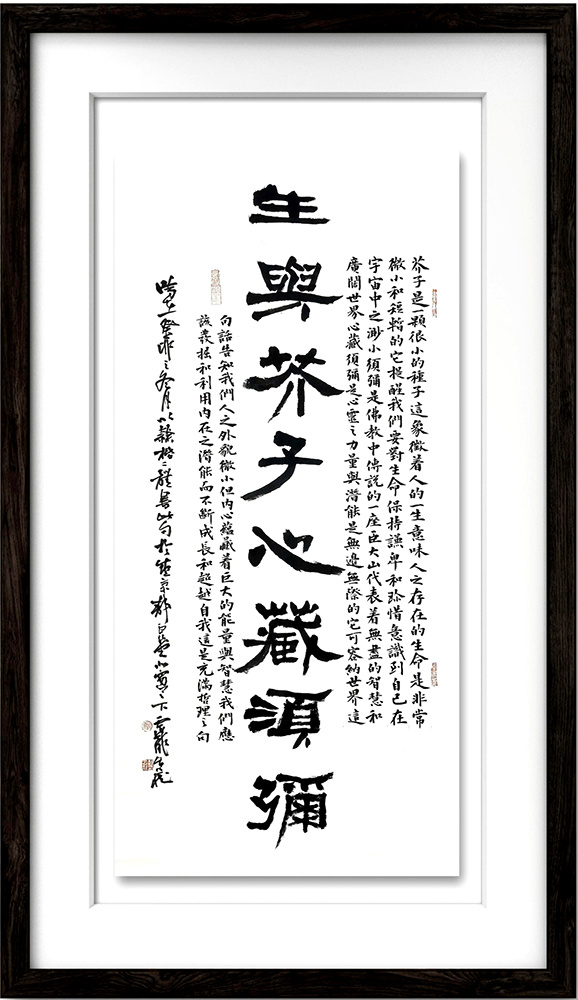 芥子是一顆很小的種子這象徵着人的一生意味人之存在的生命是非常
微小和短暫的它提醒我們要對生命保持謙卑和珍惜意識到自己在
宇宙中之渺小須彌是佛教中傳說的一座巨大山代表着無盡的智慧和
廣闊世界心藏須彌是心靈之力量與潛能是無邊無際的它可容納世界這
生與芥子心藏須彌
句話告知我們人之外貌微小但内心蘊藏着巨大的能量與智慧我們應
該發掘和利用内在之潛能而不斷成長和超越自我這是充滿哲理之句
癸卯之冬月以隸楷二體書此句於